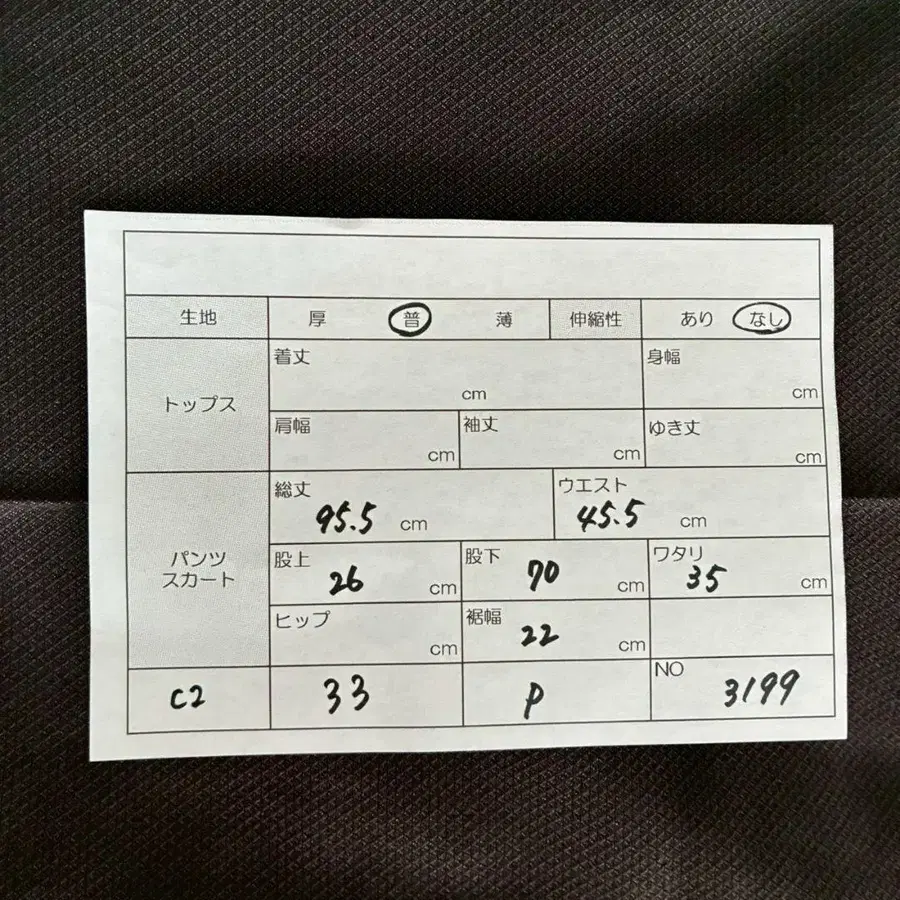 生地 厚 普 薄 伸縮性 あり なし
トップス
着丈 cm
身幅 cm
肩幅 cm
袖丈 cm
ゆき丈 cm
パンツ
スカート
総丈 95.5 cm
ウエスト 45.5 cm
股上 26 cm
股下 70 cm
ワタリ 35 cm
ヒップ cm
裾幅 22 cm
C2 33 P NO 3199